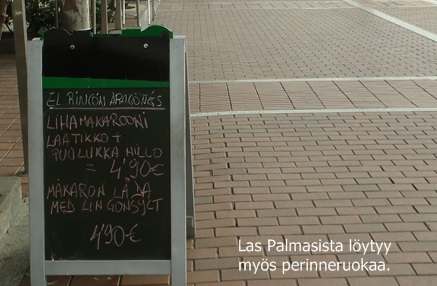 EL RINCÓN ARAGONÉS
LIHAMAKAROONI
LAATIKKO +
PUOLUKKA HILLO
= 4'90€
MAKARON LÅDA
MED LINGONSYLT
4'90€
Las Palmasista löytyy
myös perinneruokaa.